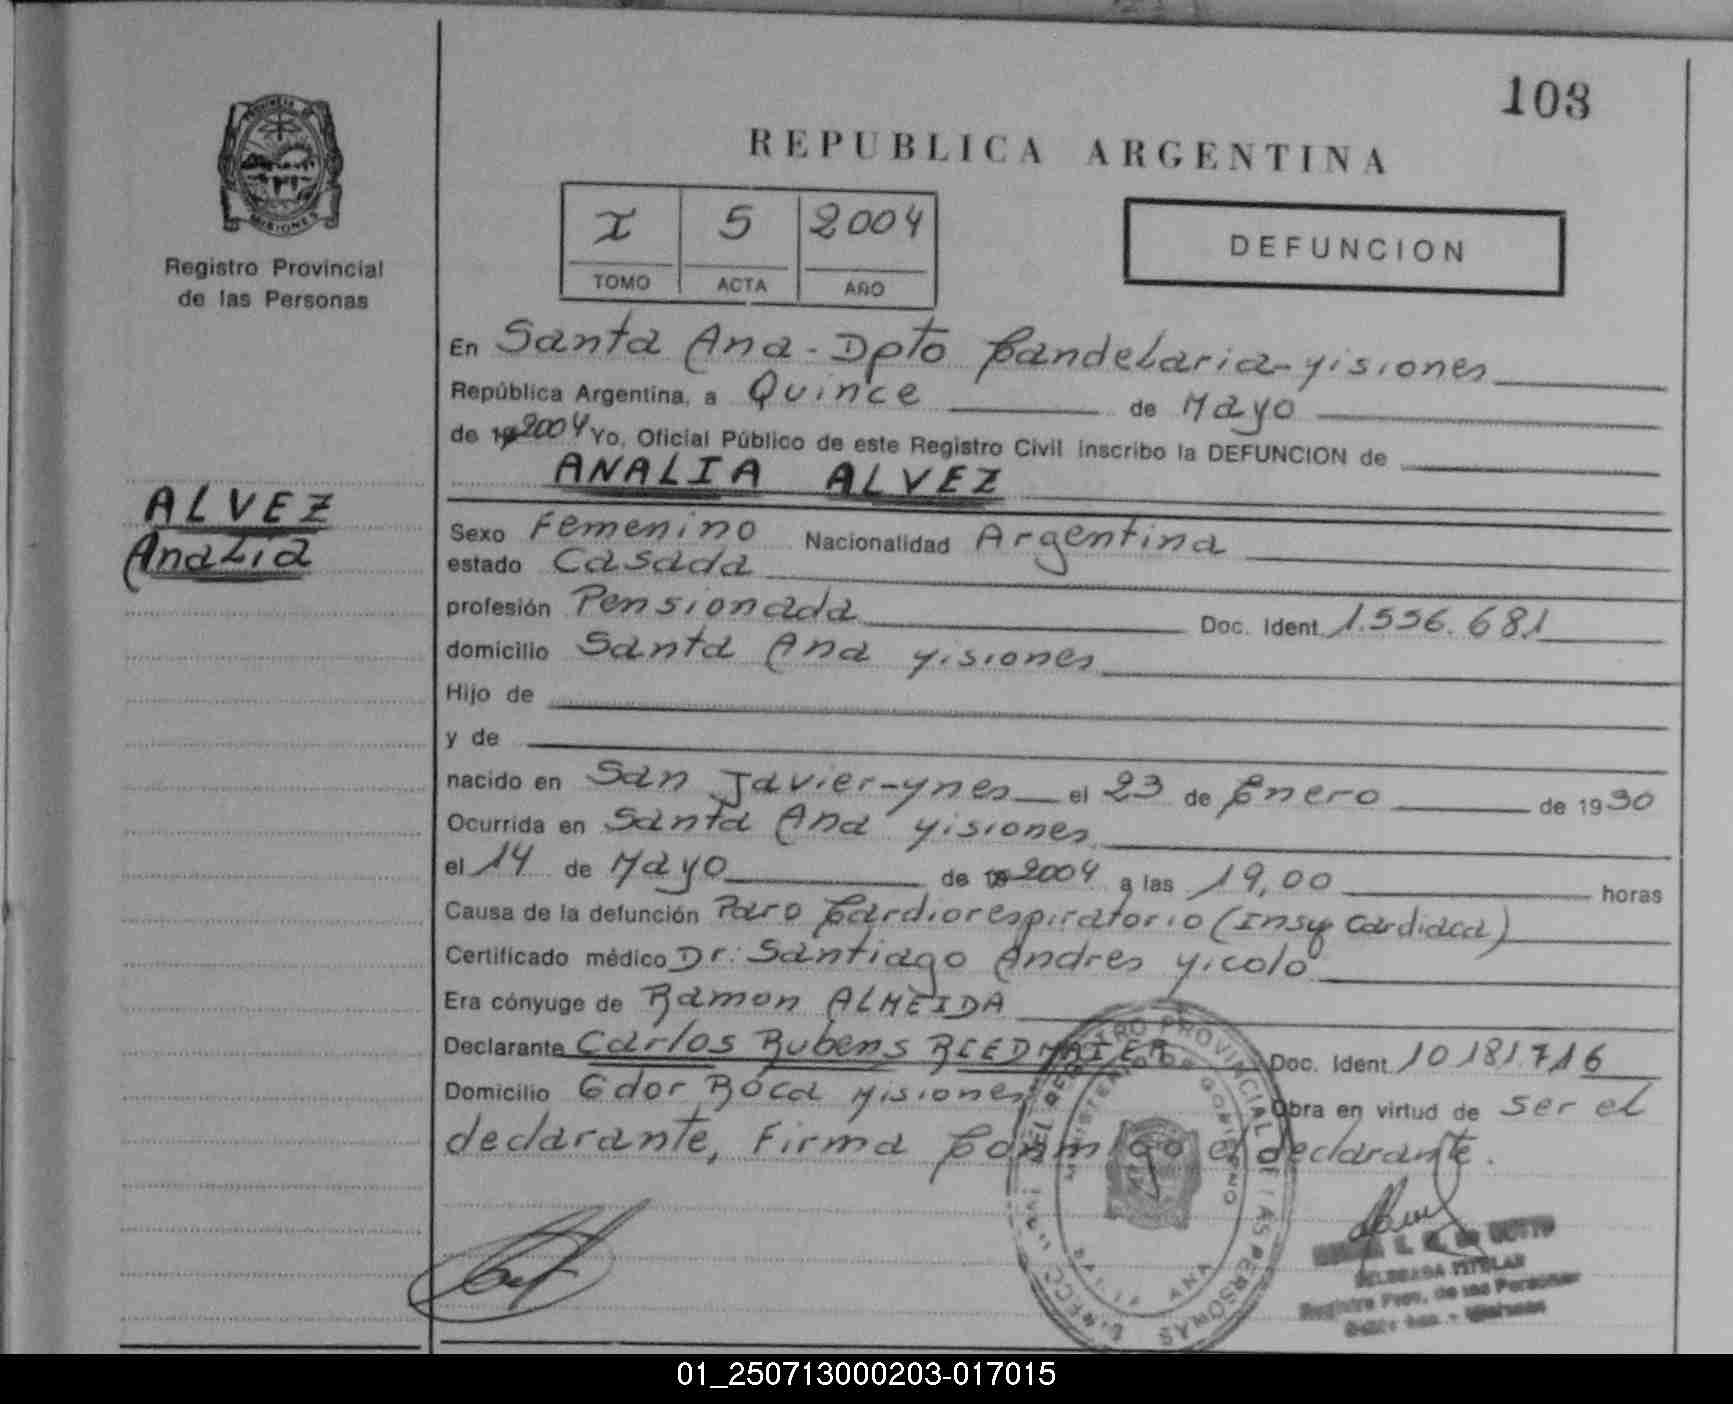 108
REPUBLICA ARGENTINA
PROVINCIA DE
MISIONES
Registro Provincial
de las Personas
I 5 2004
TOMO ACTA AÑO
DEFUNCION
En Santa Ana - Dpto Candelaria - Misiones
República Argentina, a Quince de Mayo
de 19 2004 Yo, Oficial Público de este Registro Civil inscribo la DEFUNCION de
ANALIA ALVEZ
ALVEZ
Analia
Sexo Femenino Nacionalidad Argentina
estado Casada
profesión Pensionada Doc. Ident. 1.556.681
domicilio Santa Ana Misiones
Hijo de
y de
nacido en San Javier - Mnes el 23 de Enero de 1930
Ocurrida en Santa Ana Misiones
el 14 de Mayo de 19 2004 a las 19,00 horas
Causa de la defunción Paro Cardiorespiratorio (Insuf Cardiaca)
Certificado médico Dr: Santiago Andres Nicolo
Era cónyuge de Ramon ALMEIDA
Declarante Carlos Rubens RIEDMAIER Doc. Ident. 10181.716
Domicilio Gdor Roca Misiones Obra en virtud de ser el
declarante, Firma Conmigo el declarante.
REGISTRO PROVINCIAL DE LAS PERSONAS
MINISTERIO DE GOBIERNO
SANTA ANA
DELEGADA TITULAR
Registro Prov. de las Personas
Santa Ana - Misiones
01_250713000203-017015